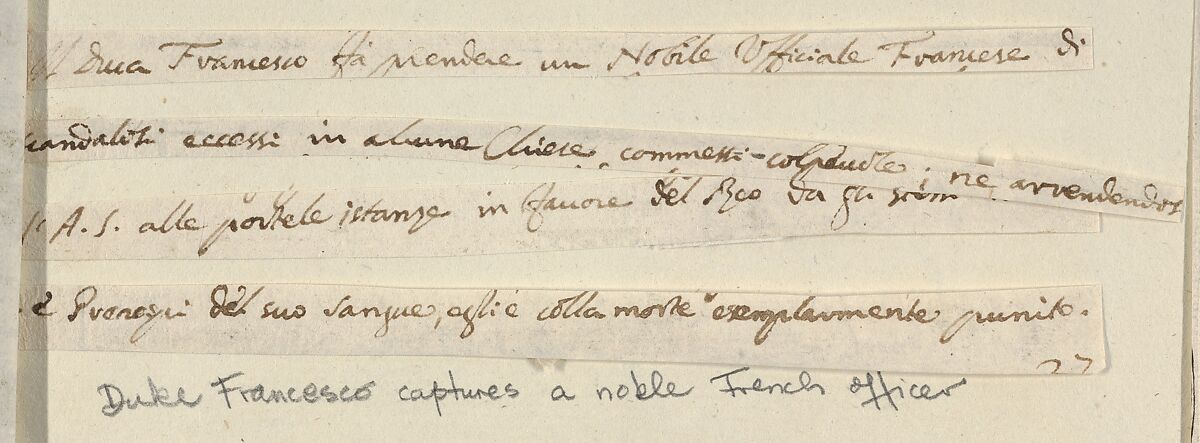 Il Duca Francesco fà prendere un Nobile Ufficiale Francese di
scandalosi eccessi in alcune Chiese commessi colpevole; ne arrendendosi
S. A. S. alle portele istanze in favore del Reo da gli
e del suo sangue, egli è colla morte esemplarmente punito.
27
Duke Francesco captures a noble French officer